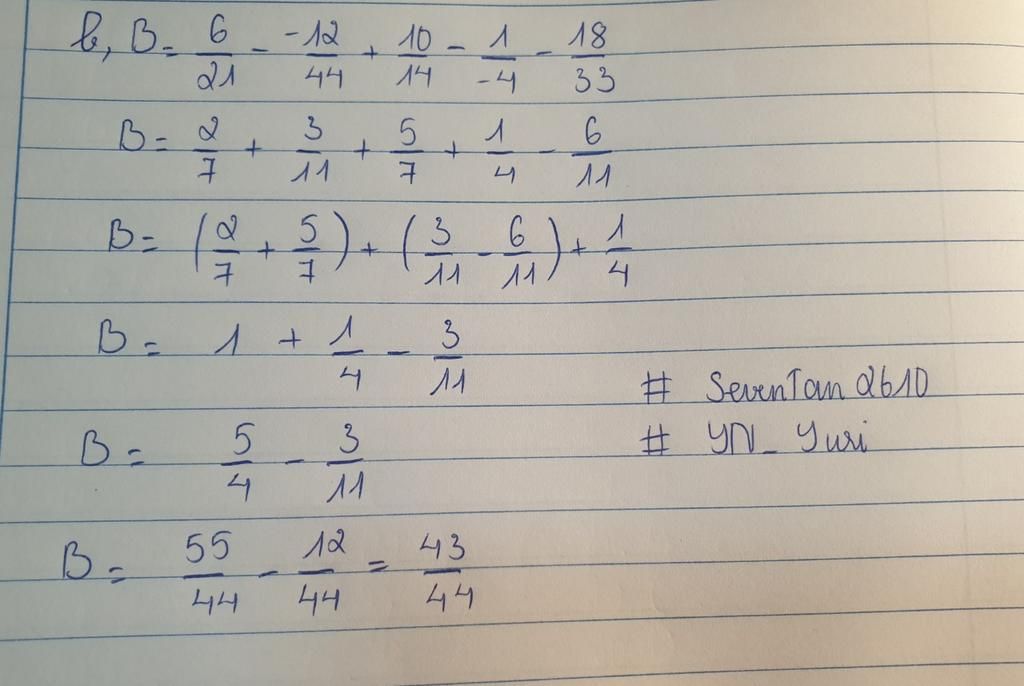 b, B = 6/21 - -12/44 + 10/14 - 1/-4 - 18/33
B = 2/7 + 3/11 + 5/7 + 1/4 - 6/11
B = (2/7 + 5/7) + (3/11 - 6/11) + 1/4
B = 1 + 1/4 - 3/11
# SevenTan2610
B = 5/4 - 3/11
# YN_Yuri
B = 55/44 - 12/44 = 43/44